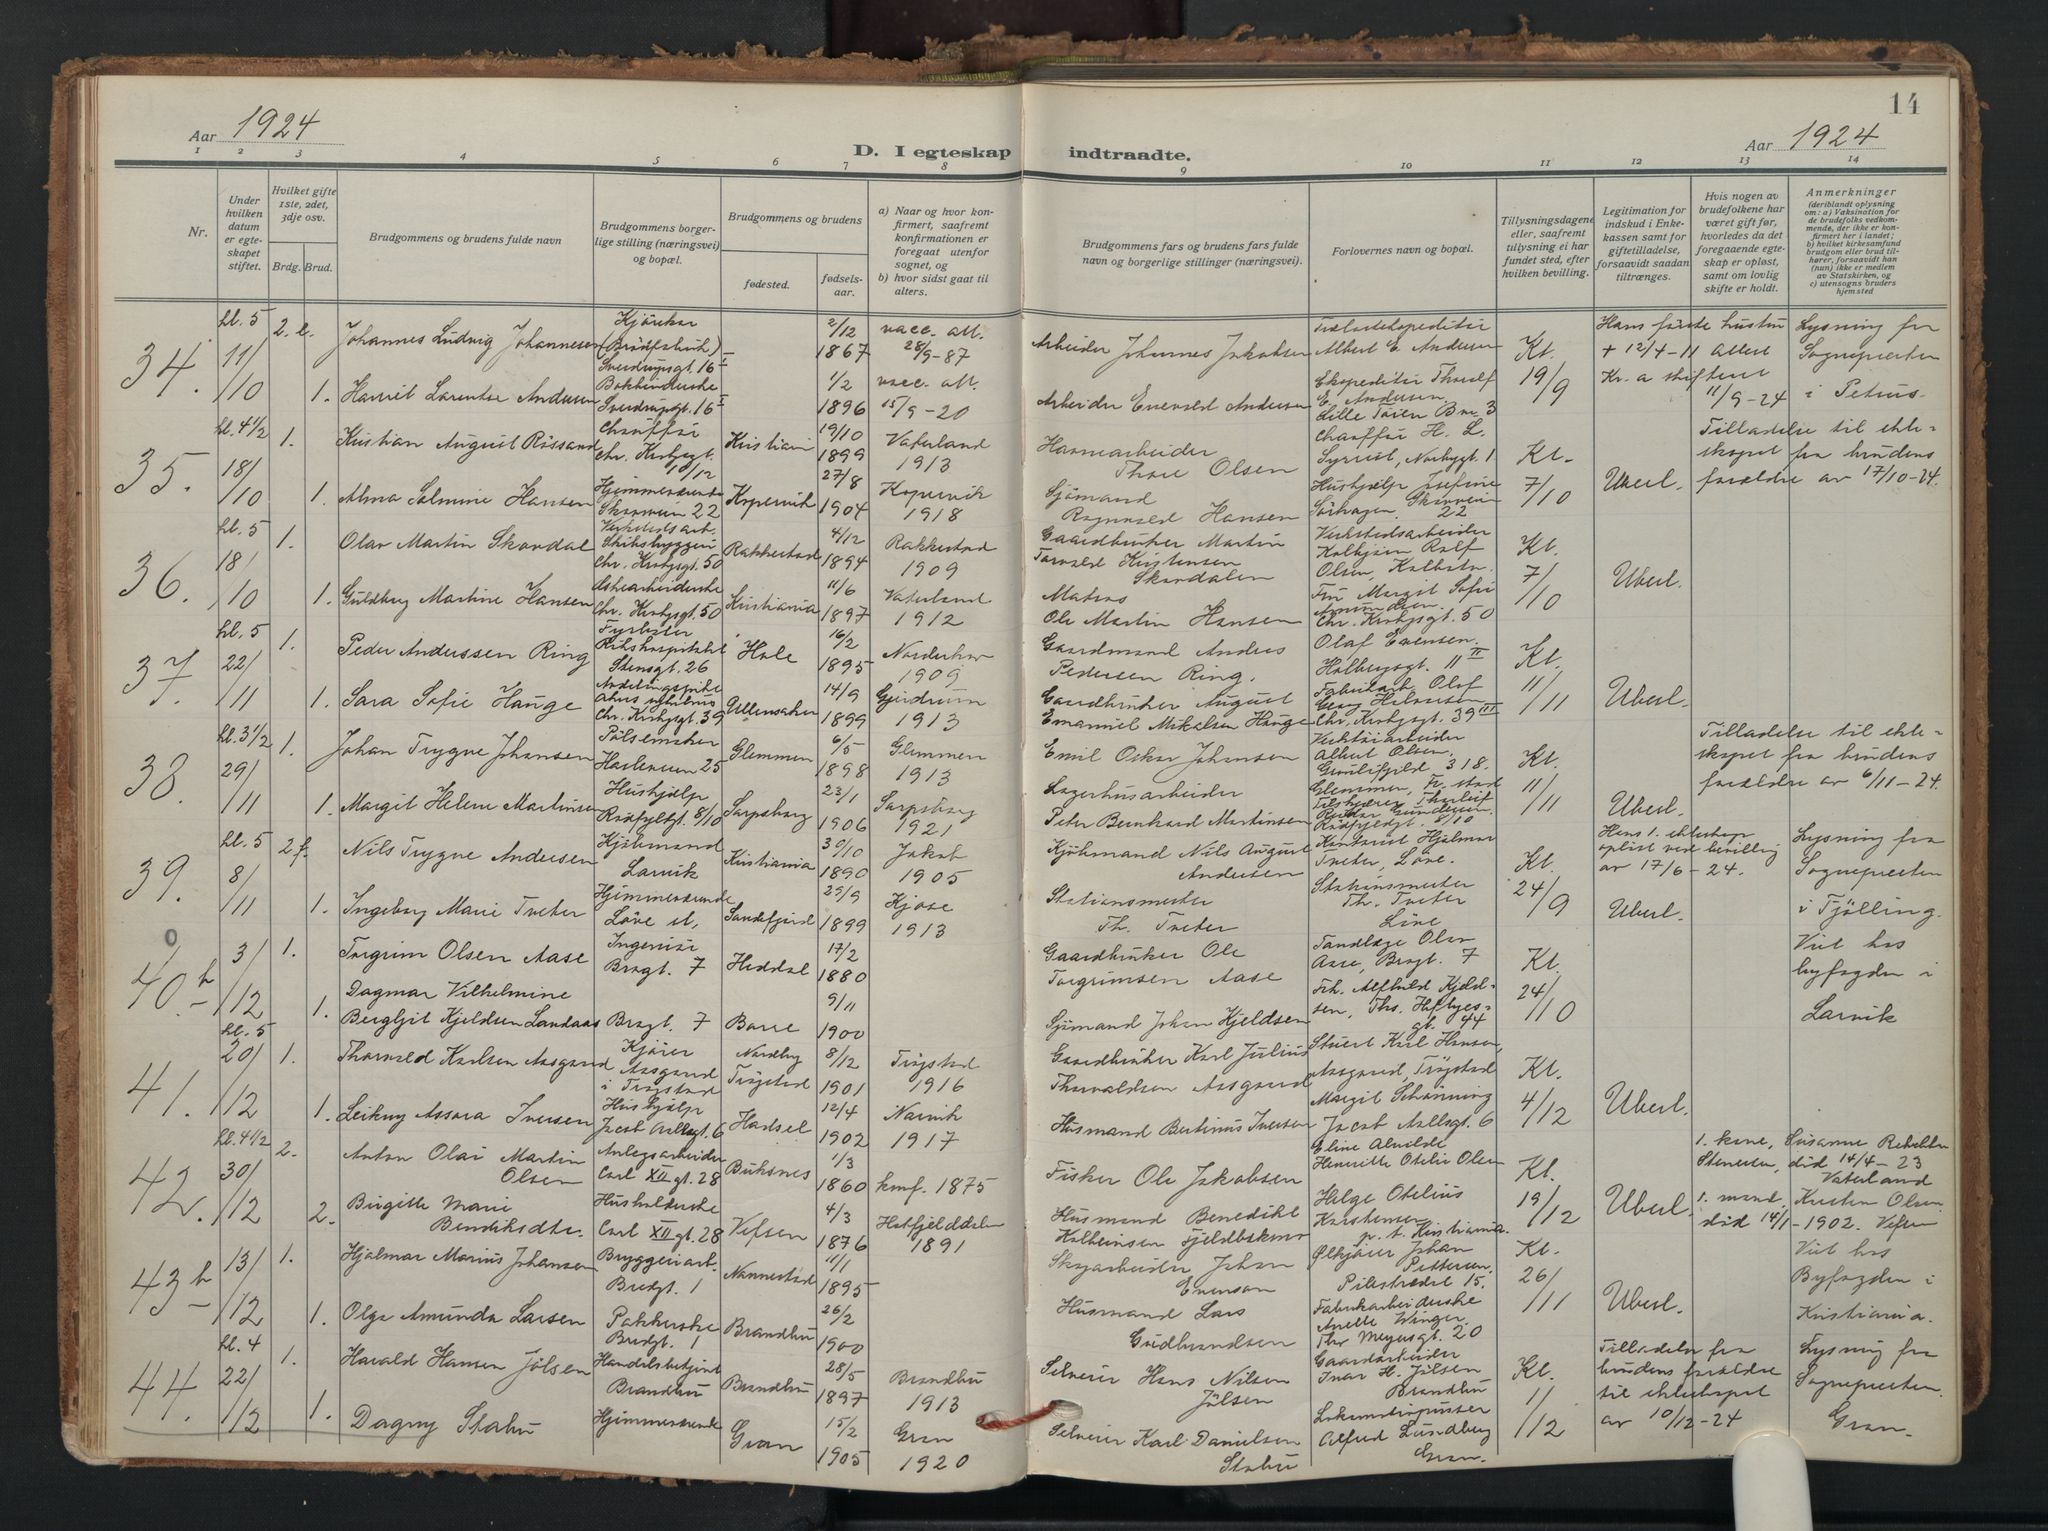 14
Aar 1924
Aar 1924
D. I egteskap indtraadte.
1 2 3 4 5 6 7 8 9 10 11 12 13 14
Nr.
Under hvilken datum er egteskapet stiftet.
Hvilket gifte 1ste, 2det, 3dje osv.
Brdg. Brud.
Brudgommens og brudens fulde navn
Brudgommens borgerlige stilling (næringsvei) og bopæl.
Brudgommens og brudens
fødested.
fødselsaar.
a) Naar og hvor konfirmert, saafremt konfirmationen er foregaat utenfor sognet, og
b) hvor sidst gaat til alters.
Brudgommens fars og brudens fars fulde navn og borgerlige stillinger (næringsvei).
Forlovernes navn og bopæl.
Tillysningsdagene eller, saafremt tillysning ei har fundet sted, efter hvilken bevilling.
Legitimation for indskud i Enkekassen samt for giftetilladelse, forsaavidt saadan tiltrænges.
Hvis nogen av brudefolkene har været gift før, hvorledes da det foregaaende egteskap er opløst, samt om lovlig skifte er holdt.
Anmerkninger (deriblandt oplysning om: a) Vaksination for de brudefolks vedkommende, der ikke er konfirmert her i landet; b) hvilket kirkesamfund brudgom eller brud tilhører, forsaavidt han (hun) ikke er medlem av Statskirken, og c) utensogns bruders hjemsted
34. kl. 5 11/10 2. e. Johannes Ludvig Johannesen Sverdrupsgt. 16 I 2/12 1867 vacc. att. 28/9-87 Arbeider Johannes Jakobsen Albert E. Andersen Kt. 19/9 Hans første hustru + 12/4-11 Attest Kr. a skifteret 11/9-24 Lysning fra Sognepresten i Petrus.
1. Harriet Larentse Andersen Sverdrupsgt. 16 I 1/2 1896 vacc. att. 15/9-20 Arbeider Enevald Andersen Ekspeditør Thoralf E. Andersen. Lille Tøien Bn. 3
35. kl. 4 1/2 18/10 1. Kristian August Røssand Chauffør Chr. Krohgsgt. 10/12 Kristiania 19/10 1899 Vaterland 1913 Havnearbeider Thore Olsen Chauffør H. L. Norbygt. 1 Kt. 7/10 Uberl. Tilladelse til ekteskapet fra brudens forældre av 17/10-24.
1. Alma Salmine Hansen Hjemmeværende 22 Kopervik 27/8 1904 Kopervik 1918 Sjømand Ragnvald Hansen Hushjelp Josefine 22
36. kl. 5 18/10 1. Olav Martin Skardal Verkstedsarb. Chr. Krohgsgt. 50 Rakkestad 4/12 1894 Rakkestad 1909 Gaardbruker Martin Torvald Kristensen Skardalen Verkstedsarbeider Kolbjørn Ralf Olsen, Kolbotn. Kt. 7/10 Uberl.
1. Guldborg Martine Hansen Chr. Krohgsgt. 50 Kristiania 11/6 1897 Vaterland 1912 Matros Ole Martin Hansen Fru Margit Sofie Amundsen. Chr. Krohgsgt. 50
37. kl. 5 22/11 1. Peder Anderssen Ring Fyrbøter Rikshospitalet Stensgt. 26 Hole 16/2 1895 Norderhov 1909 Gaardmand Anders Pedersen Ring. Olaf Evensen. Holbergsgt. 11 II Kt. 11/11 Uberl.
1. Sara Sofie Hauge Chr. Krohgsgt. 39 Ullensaker 14/9 1899 Gjerdrum 1913 Gaardbruker August Emanuel Mikelsen Hauge Fabrikarb. Olaf Georg Halvorsen Chr. Krohgsgt. 39 III
38. kl. 3 1/2 29/11 1. Johan Trygve Johansen Pølsemaker Hasleveien 25 Glemmen 6/5 1898 Glemmen 1913 Emil Oskar Johansen Verktøiarbeider Albert Olsen, 318. Glemmen, Fr. stad Kt. 11/11 Uberl. Tilladelse til ekteskapet fra brudens forældre av 6/11-24.
1. Margit Helene Martinsen Hushjælp 8/10 Sarpsborg 23/1 1906 Sarpsborg 1921 Lagerhusarbeider Peter Bernhard Martinsen 8/10
39. kl. 5 8/11 2. f. Nils Trygve Andersen Kjøbmand Larvik Kristiania 30/10 1890 Jakob 1905 Kjøbmand Nils August Andersen Kontorist Hjalmar Tveter, Løve. Kt. 24/9 Uberl. Hans 1. ekteskap opløst ved bevilling av 17/6-24. Lysning fra Sognepresten i Tjølling.
1. Ingeborg Marie Tveter Hjemmeværende Løve st. Sandefjord 29/9 1899 Kjose 1913 Stationsmester Th. Tveter Stationsmester Th. Tveter Løve
40. b 3/12 1. Torgrim Olsen Aase Ingeniør Bragt. 7 Heddal 17/2 1880 Gaardbruker Ole Torgrimsen Aase Tandlæge Olav Aase, Bragt. 7 Kt. 24/10 Viet hos byfogden i Larvik
1. Dagmar Vilhelmine Bergljot Kjeldsen Landaas Bragt. 7 Borre 9/11 1900 Sjømand Johan Kjeldsen Frk. Alfhild Kjeldsen, Ths. Heftyesgt. 44
41. kl. 5 20/12 1. Thorvald Karlsen Aasgaard Kjører Aasgaard i Trøgstad Nordby Trøgstad 8/12 1901 Trøgstad 1916 Gaardbruker Karl Julius Thorvaldsen Aasgaard Stuert Karl Hansen, Aasgaard, Trøgstad Kt. 4/12 Uberl.
1. Leikny Assora Iversen Hushjælp Jacob Aallsgt. 6 Hadsel 12/4 1902 Narvik 1917 Husmand Bertinus Iversen Margit Schønning Jacob Aallsgt. 6
42. kl. 4 1/2 30/12 2. Anton Olai Martin Olsen Anlegsarbeider Carl XII gt. 28 Buksnes 1/3 1860 konf. 1875 Fisker Ole Jakobsen Eline Alvilde Henriette Otelie Olsen Kt. 19/12 Uberl. 1. kone, Susanne Rebekka Stenersen, død 14/4-23 Vaterland
2. Birgitte Marie Bendiksdtr. Husholderske Carl XII gt. 28 Vefsen 4/3 1876 Hatfjelddalen 1891 Husmand Benedikt Kolbeinsen Fjeldbekmo Helge Otelius Karstensen p. t. Kristiania. 1. mand, Kristen Olsen død 14/1-1902. Vefsen
43. b 13/12 1. Hjalmar Marius Johansen Bryggeriarb. Bredgt. 1 Nannestad 11/1 1895 Skogarbeider Johan Evensen Ølkjører Johan Pettersen. Pilestrædet 15. Kt. 26/11 Uberl. Viet hos Byfogden i Kristiania.
1. Olga Amunda Larsen Pakkerske Bredgt. 1 Brandbu 26/2 1900 Husmand Lars Gudbrandsen Fabrikarbeiderske Anette Winger Thv. Meyersgt. 20
44. kl. 4 22/12 1. Harald Hansen Jølsen Handelsbetjent Brandbu Brandbu 28/5 1897 Brandbu 1913 Selveier Hans Nilsen Jølsen Gaardarbeider Ivar H. Jølsen Brandbu Kt. 11/12 Tilladelse fra brudens forældre til ekteskapet av 10/12-24 Lysning fra Sognepresten. Gran.
1. Dagny Stabu Hjemmeværende Gran 15/2 1905 Gran 1920 Selveier Karl Danielsen Stabu Lokomotivpusser Alfred Lundberg Gran.